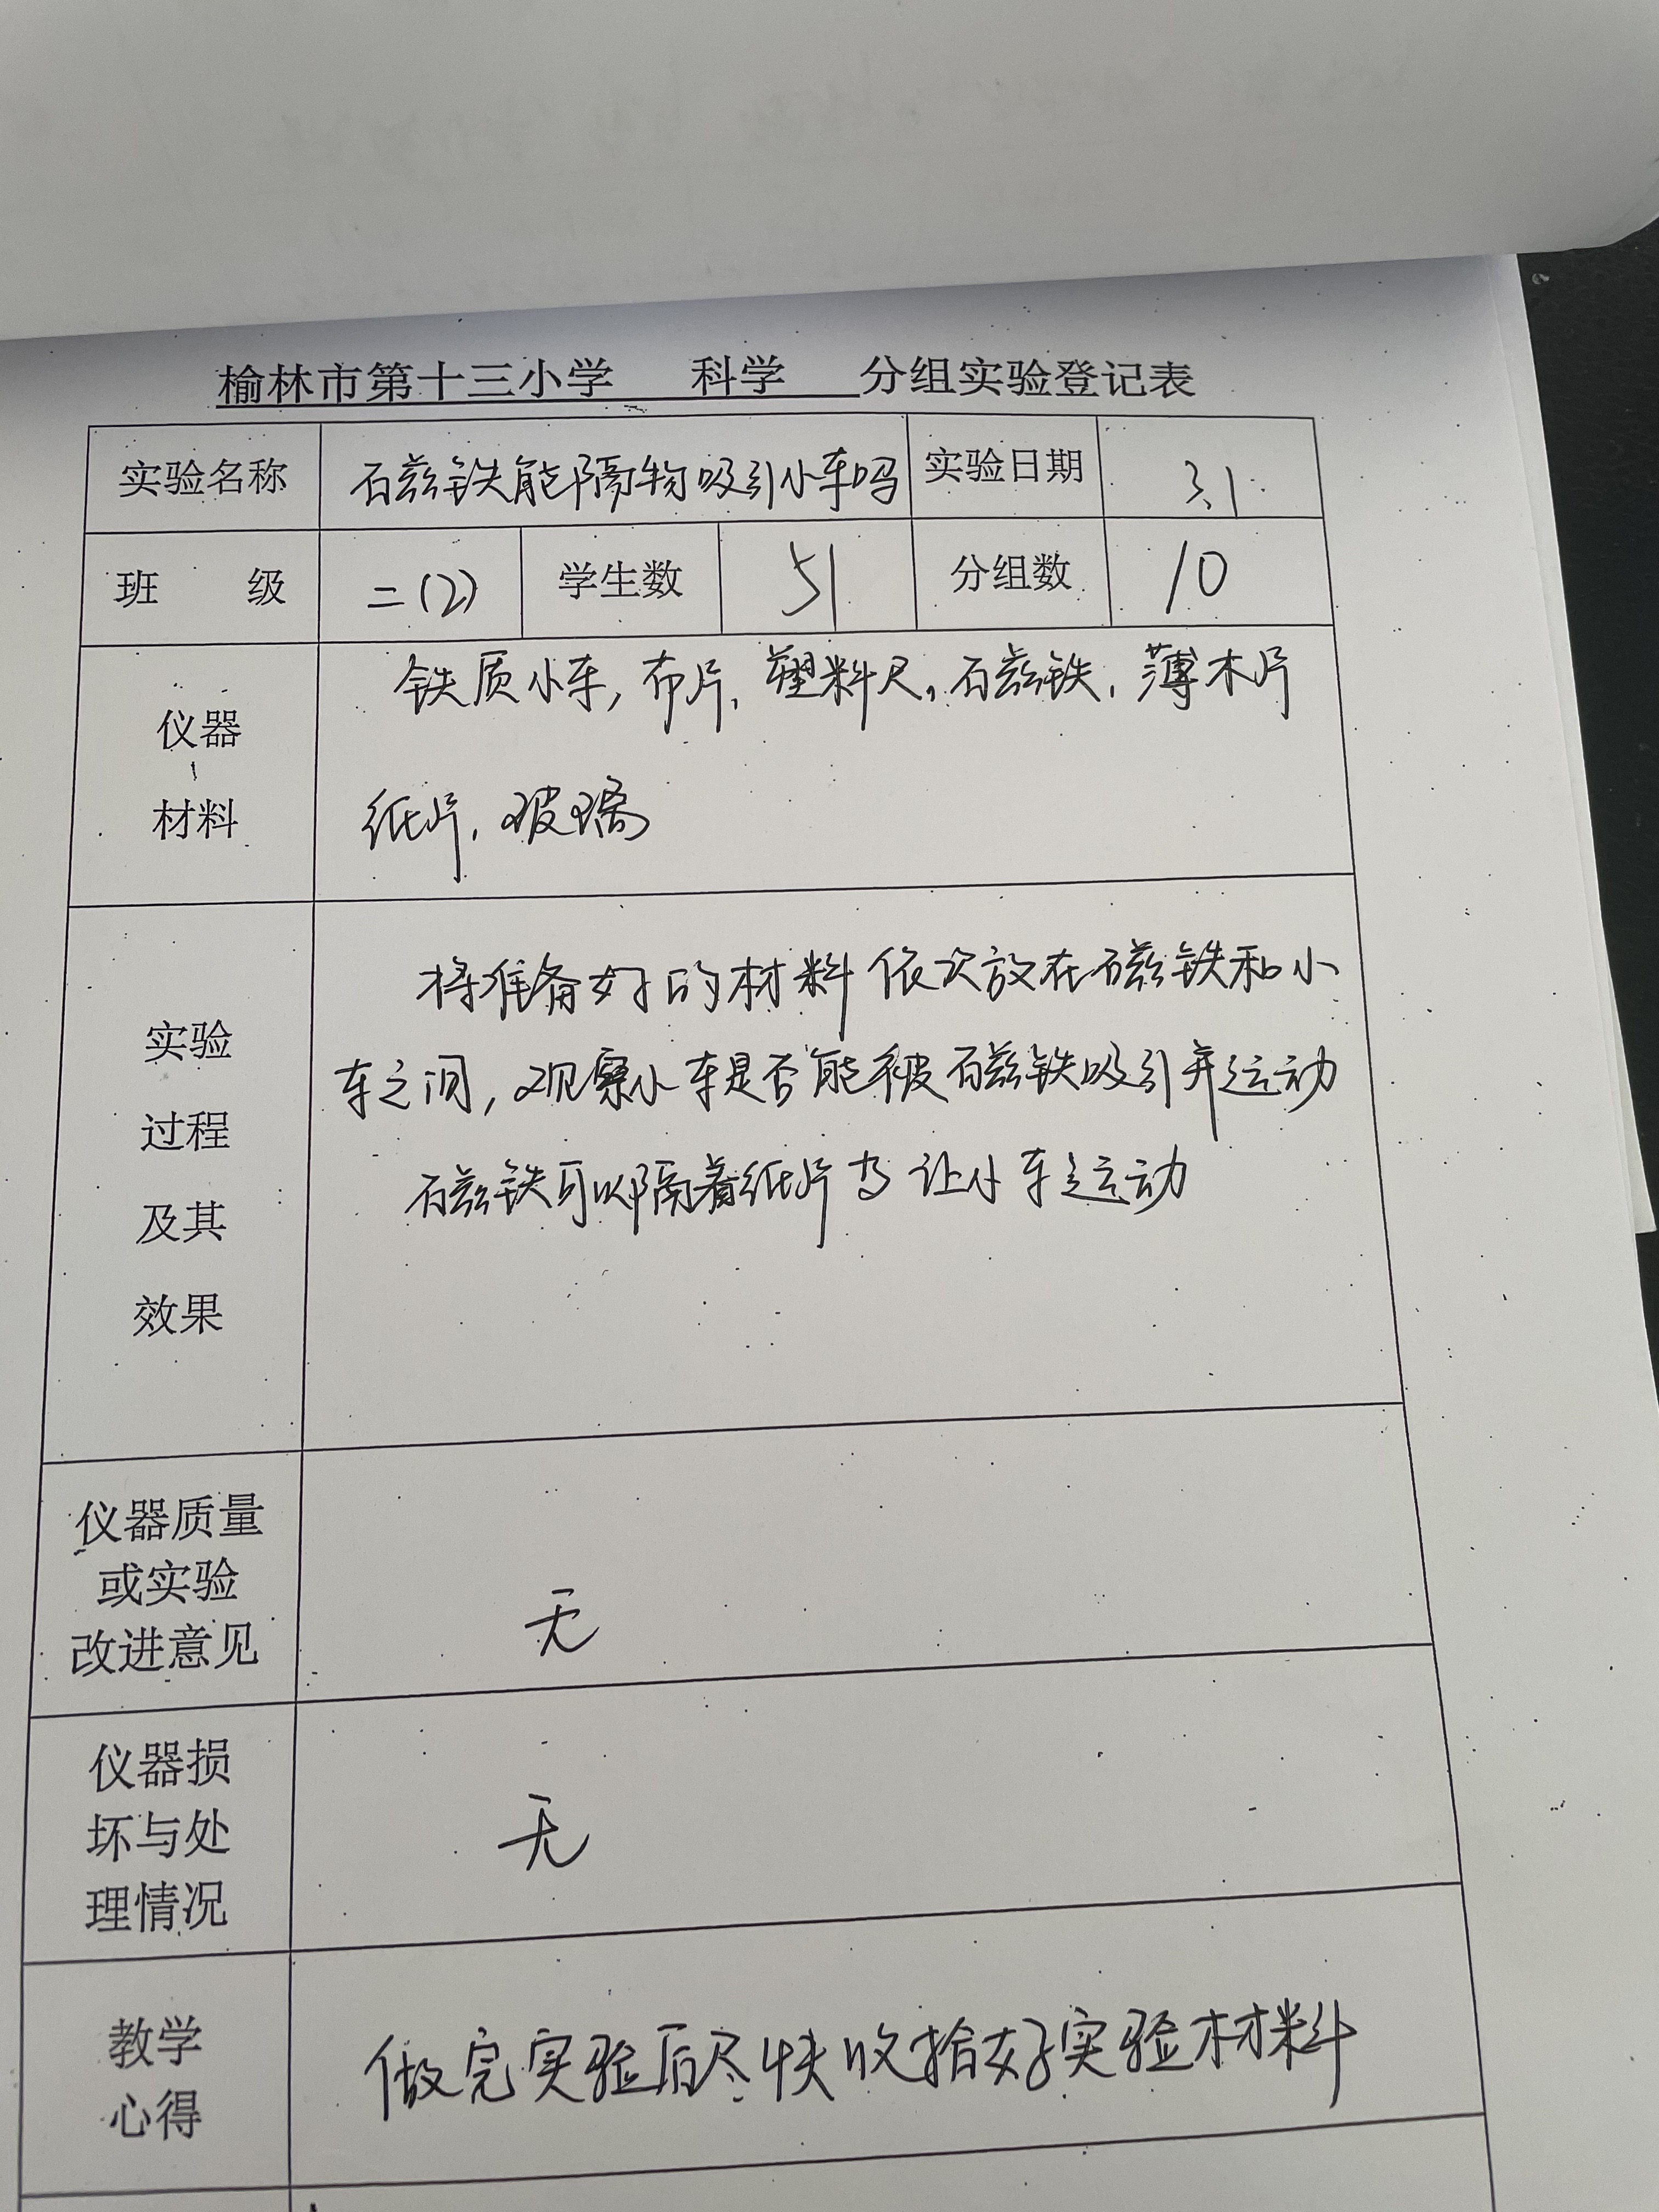 榆林市第十三小学 科学 分组实验登记表
实验名称 石磁铁能隔物吸引小车吗 实验日期 3.1
班 级 二(2) 学生数 51 分组数 10
仪器
材料
铁质小车,布片,塑料尺,石磁铁,薄木片
纸片,玻璃
实验
过程
及其
效果
将准备好的材料依次放在石磁铁和小
车之间,观察小车是否能被石磁铁吸引并运动
石磁铁可以隔着纸片 让小车运动
仪器质量
或实验
改进意见
无
仪器损
坏与处
理情况
无
教学
心得
做完实验后尽快收拾好实验材料